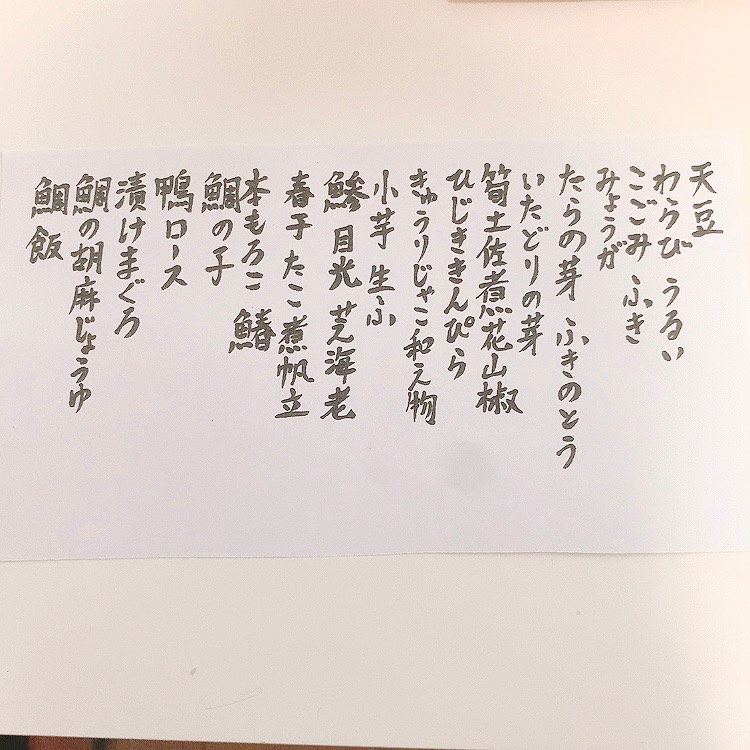 天豆
わらび うるい
こごみ ふき
みょうが
たらの芽 ふきのとう
いたどりの芽
筍土佐煮花山椒
ひじききんぴら
きゅうりじゃこ和え物
小芋 生ふ
鯵 目光 芝海老
春子 たこ煮帆立
本もろこ 鰆
鯛の子
鴨ロース
漬けまぐろ
鯛の胡麻じょうゆ
鯛飯